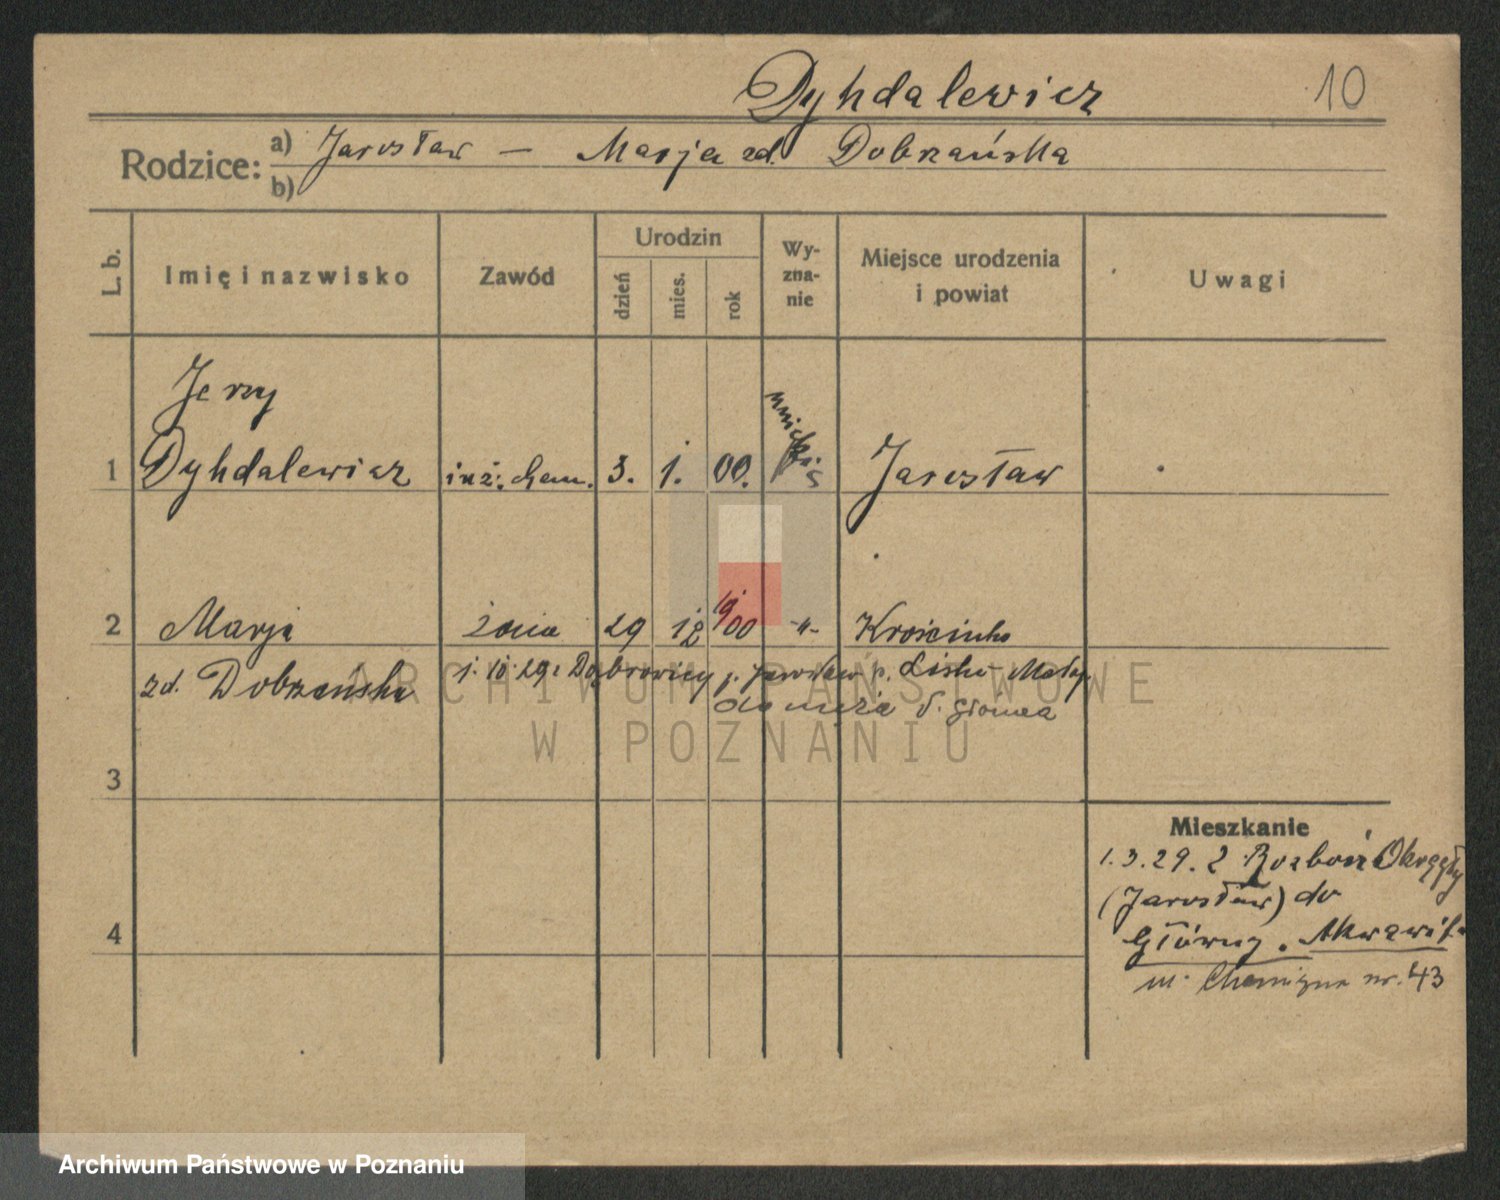 Dyhdalewicz 10
Rodzice: a) Jarosław – Marja zd. Dobrzańska
b)
L. b. Imię i nazwisko Zawód Urodzin dzień mies. rok Wyznanie Miejsce urodzenia i powiat Uwagi
Jerzy
1 Dyhdalewicz inż. chem. 3. 1. 00. Jarosław
2 Marja żona 29 12 1900 -"- Krościenko
zd. Dobrzańska 1. 10. 29 z Dąbrowicy p. Jarosław p.
do męża
ARCHIWUM PAŃSTWOWE
W POZNANIU
3
4
Mieszkanie
1.3.29. z Rozbórz Okrągły
(Jarosław) do
Główny. Akwawit
ul. Chemiczna nr. 43
Archiwum Państwowe w Poznaniu